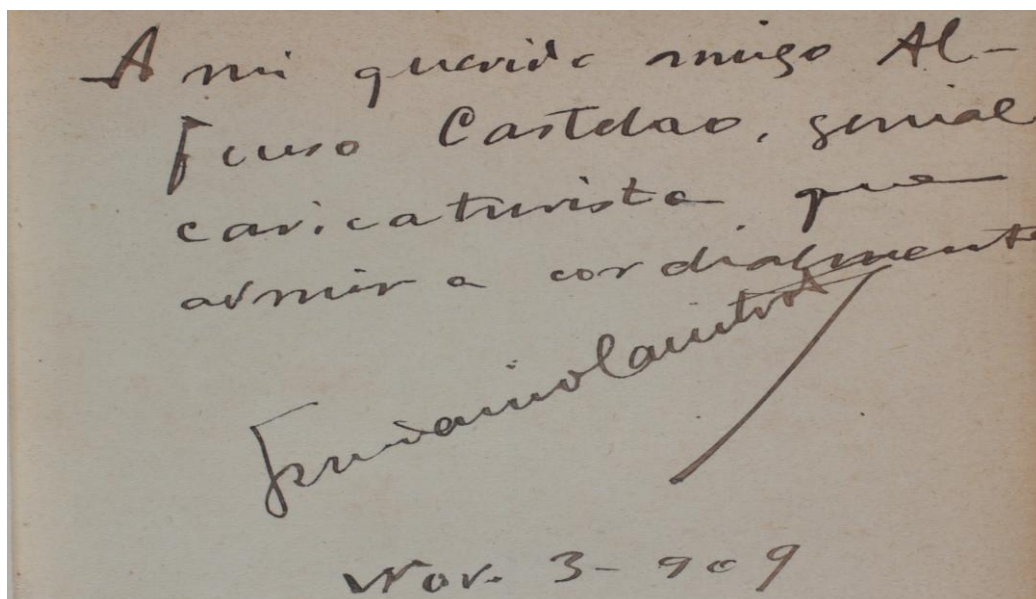 A mi querido amigo Al-
fonso Castelao, genial
caricaturista que
admira cordialmente
Nov. 3-909